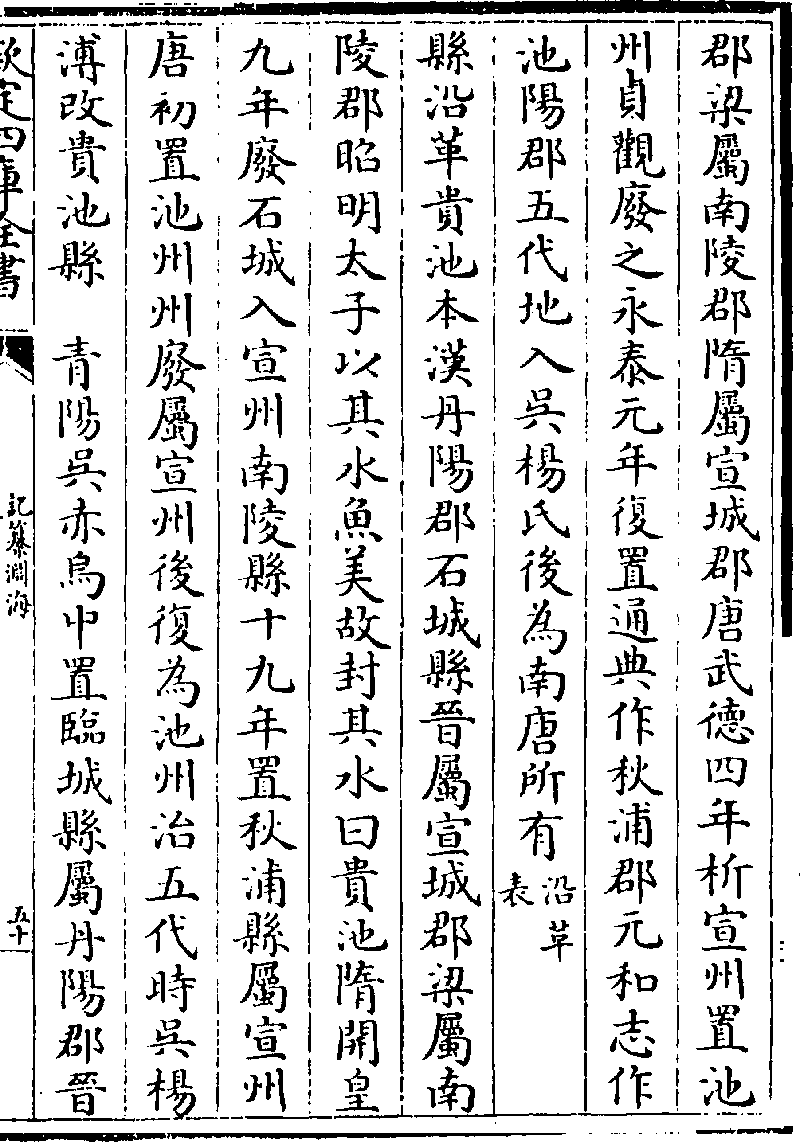 郡梁屬南陵郡隋屬宣城郡唐武德四年析宣州置池
州貞觀廢之永泰元年復置通典作秋浦郡元和志作
池陽郡五代地入吳楊氏後為南唐所有沿革表
縣沿革貴池本漢丹陽郡石城縣晉屬宣城郡梁屬南
陵郡昭明太子以其水魚美故封其水曰貴池隋開皇
九年廢石城入宣州南陵縣十九年置秋浦縣屬宣州
唐初置池州州廢屬宣州後復為池州治五代時吳楊
溥改貴池縣　青陽吳赤烏中置臨城縣屬丹陽郡晉
欽定四庫全書
記纂淵海
五十